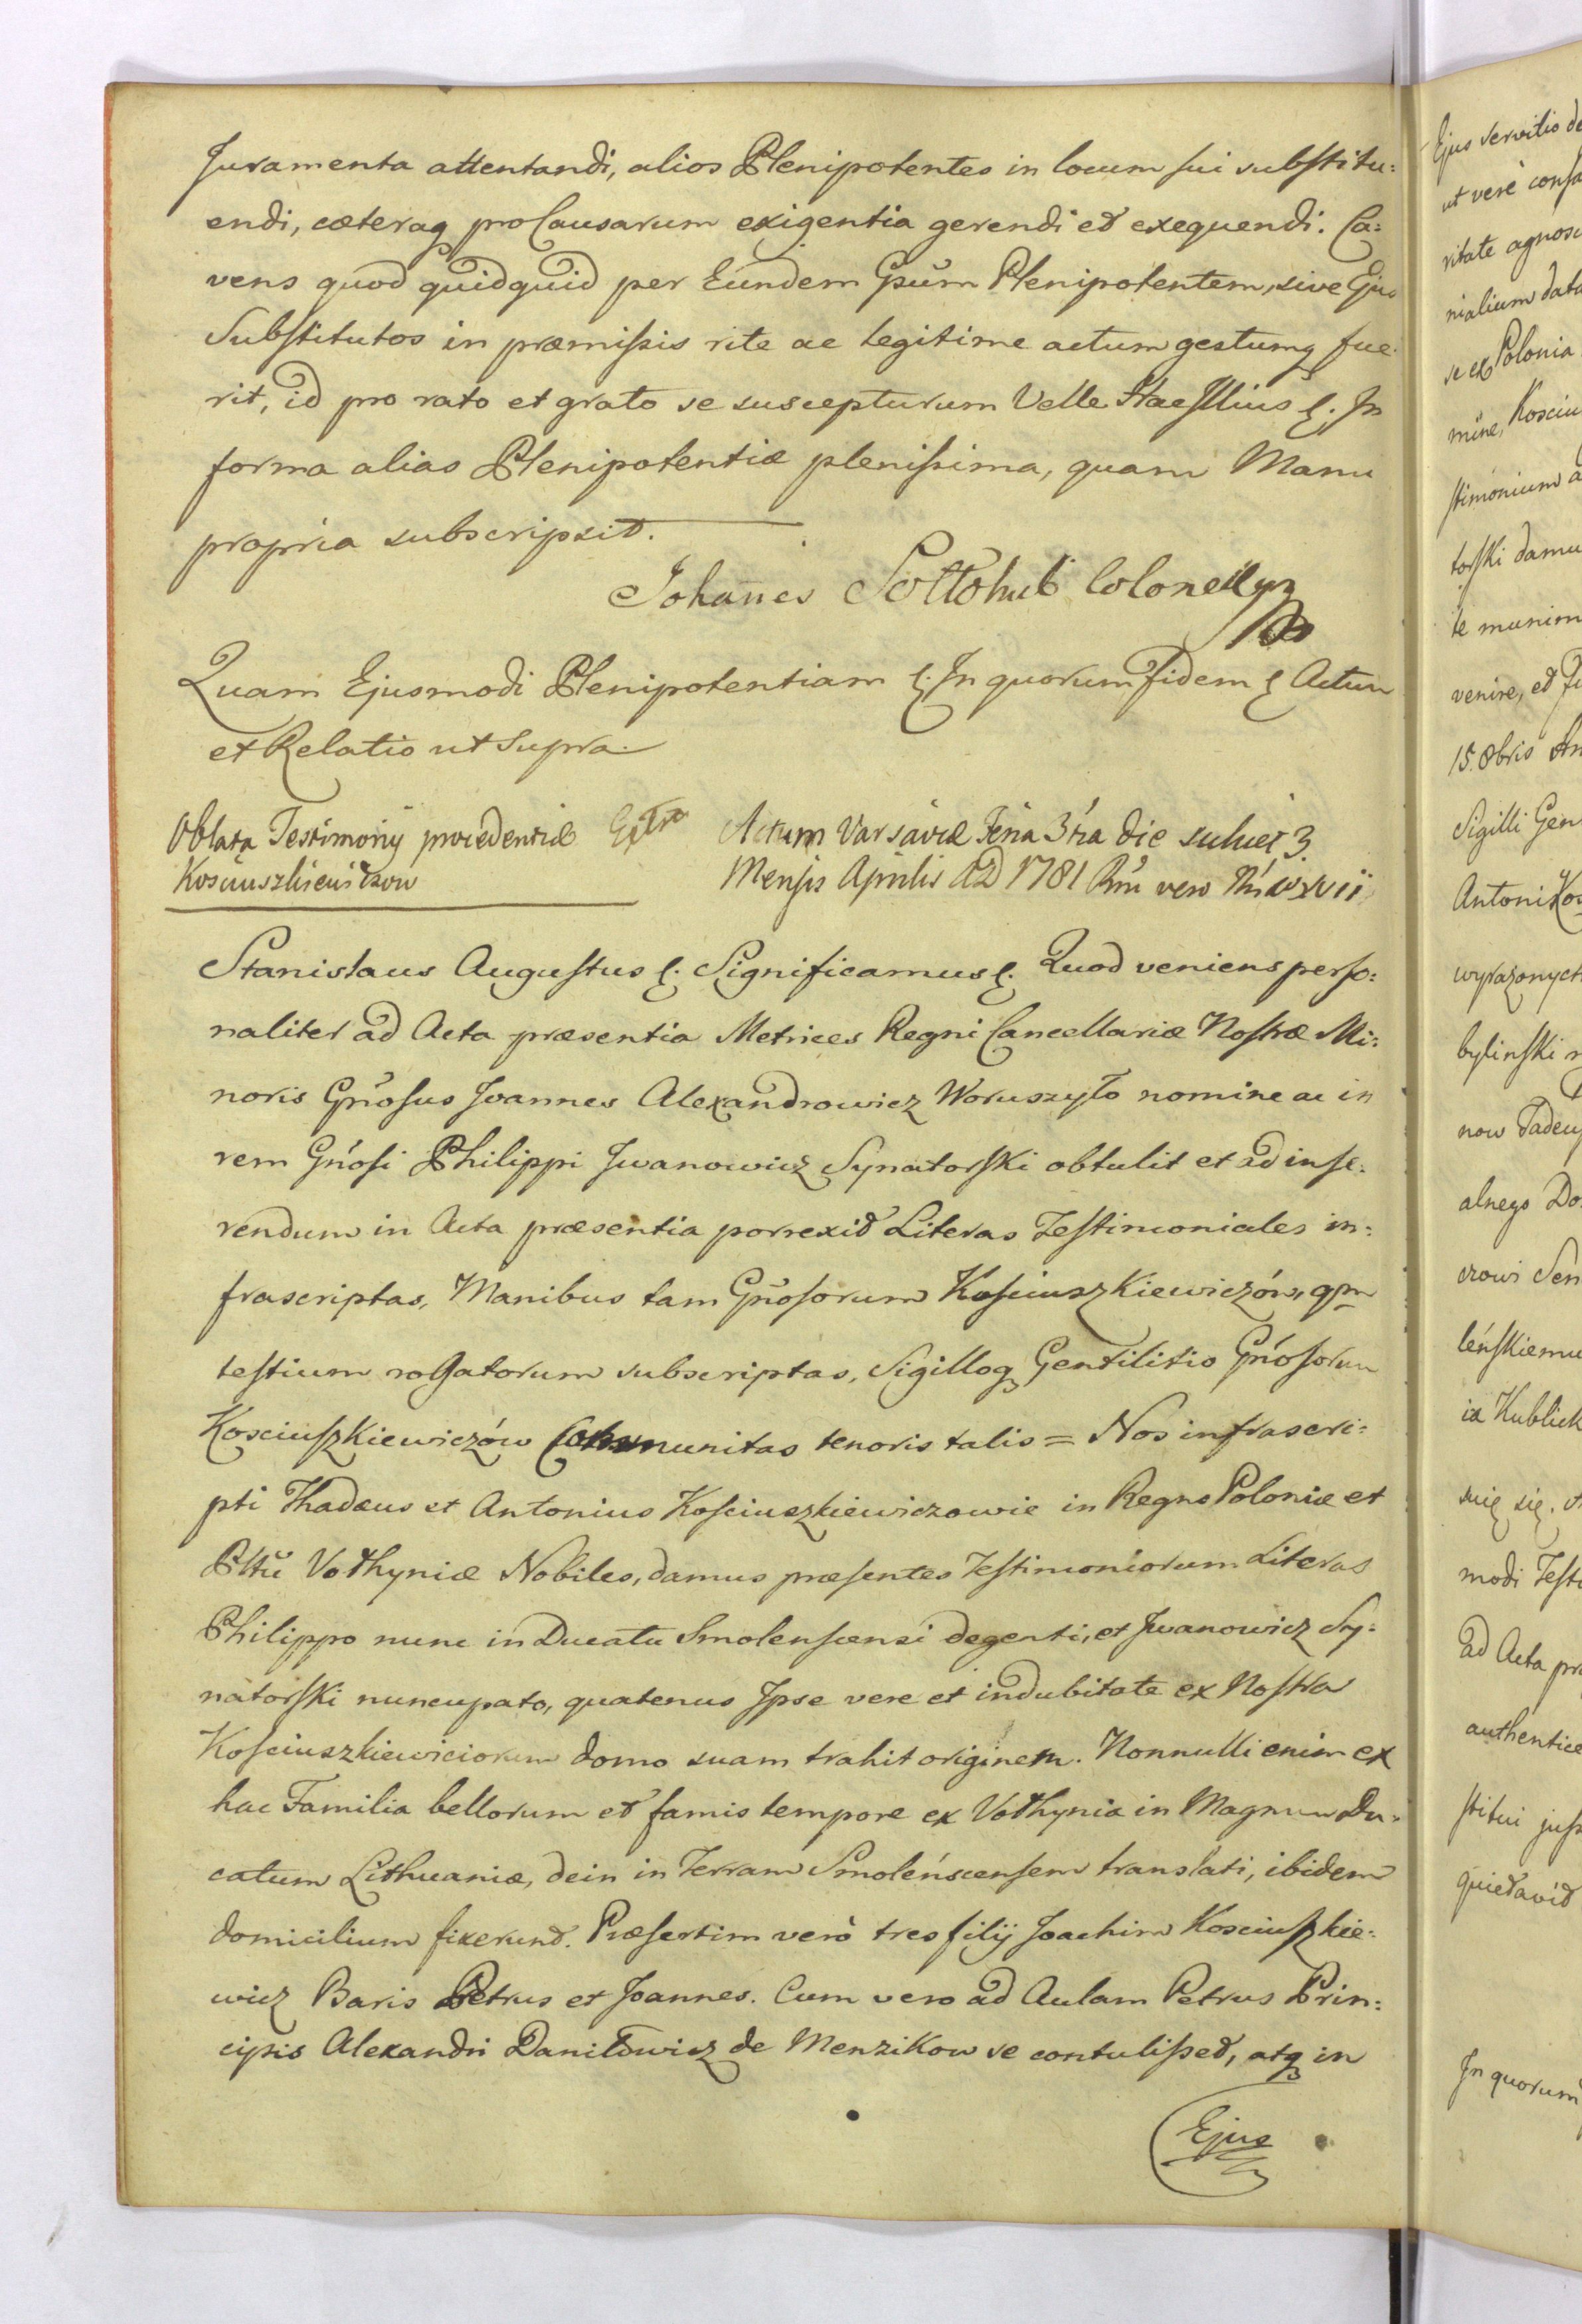 Juramenta attentandi, alios Plenipotentes in locum sui substitu:
endi, cæteraq pro Causarum exigentia gerendi et exequendi. Ca:
vens quod quidquid per Eundem Gsum Plenipotentem, sive Ejus
Substitutos in præmissis rite ac legitime actum gestumq fue:
rit, id pro rato et grato se suscepturum Velle. In
forma alias Plenipotentiæ plenissima, quam Manu
propria subscripsit.
Johannes Sołłohub Colonellus
Quam Ejusmodi Plenipotentiam &. In quorum Fidem & Actum
et Relatio ut Supra.
Oblata Testimonij procedentiæ Extr
Kosciuszkiewiczow
Actum Varsaviæ Feria 3tia die scilicet 3.
Mensis Aprilis AD 1781
Stanislaus Augustus &. Significamus &. Quod veniens perso:
naliter ad Acta præsentia Metrices Regni Cancellariæ Nostræ Mi:
noris Gnosus Joannes Alexandrowicz Woruszyło nomine ac in
rem Gnosi Philippi Jwanowicz Synatorski obtulit et ad inse:
rendum in Acta præsentia porrexit Literas Testimoniales in:
frascriptas, Manibus tam Gnosorum Kosciuszkiewiczów, qm
testium rogatorum subscriptas, Sigilloq Gentilitio Gnosorum
Kosciuszkiewiczów Communitas tenoris talis = Nos infrascri:
pti Thadæus et Antonius Kosciuszkiewiczowie in Regno Poloniæ et
Pttu Vołhyniæ Nobiles, damus præsentes Testimoniorum Literas
Philippo nunc in Ducatu Smolenscensi degenti, et Jwanowicz Sy:
natorski nuncupato, quatenus Ipse vere et indubitate ex Nostra
Kosciuszkiewiciorum domo suam trahit originem. Nonnulli enim ex
hac Familia bellorum et famis tempore ex Vołhynia in Magnum Du:
catum Lithuaniæ, dein in Terram Smoleńscensem translati, ibidem
domicilium fixerunt. Præsertim verò tres filij Joachim Kosciuszkie:
wicz Baris Petrus et Joannes. Cum vero ad Aulam Petrus Prin:
cipis Alexandri Daniłowicz de Menzikow se contulisset, atq in
Ejus
Ejus servitio
ut verè
ritate
nialium
se ex Polonia
mine,
stimonium
torski
te
venire, et
15. 8bris
Sigilli
Antoni
wyrazonych
bylinski
now
alnego
leńskiemu
się.
modi
ad Acta
authentice
stitui
quietavit
In quorum